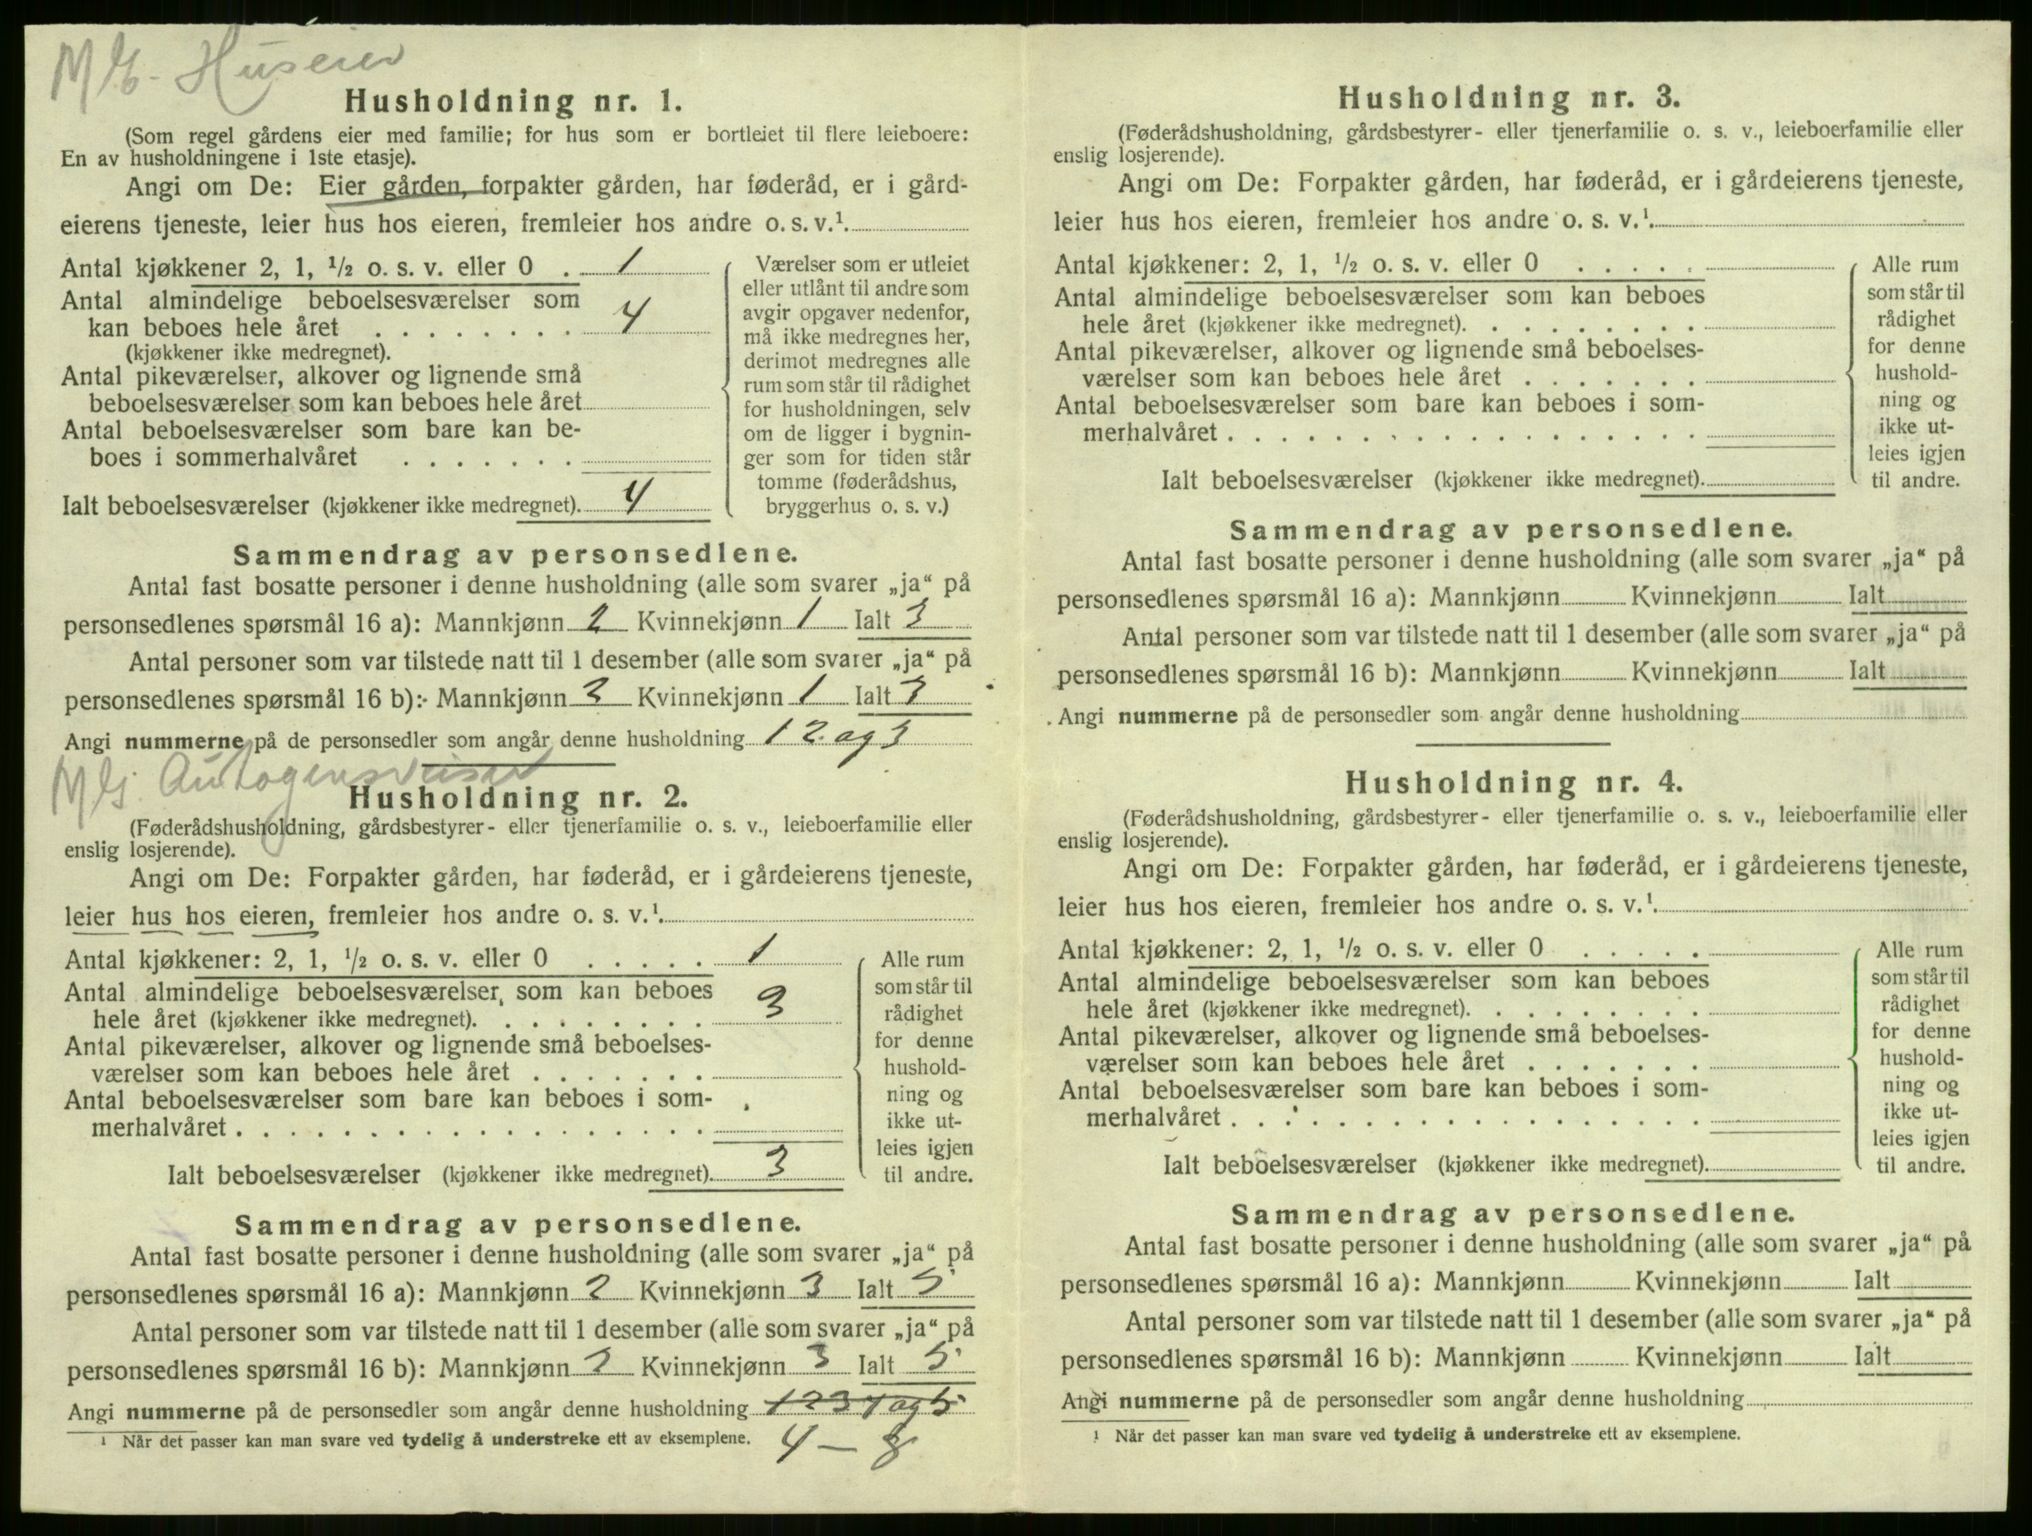 M G. Huseier
Husholdning nr. 1.
(Som regel gårdens eier med familie; for hus som er bortleiet til flere leieboere:
En av husholdningene i 1ste etasje).
Angi om De: Eier gården, forpakter gården, har føderåd, er i gård-
eierens tjeneste, leier hus hos eieren, fremleier hos andre o. s. v.¹.
Antal kjøkkener 2, 1, ½ o. s. v. eller 0 . 1
Antal almindelige beboelsesværelser som
kan beboes hele året . . . . . . . . 4
(kjøkkener ikke medregnet).
Antal pikeværelser, alkover og lignende små
beboelsesværelser som kan beboes hele året
Antal beboelsesværelser som bare kan be-
boes i sommerhalvåret . . . . . . .
Ialt beboelsesværelser (kjøkkener ikke medregnet). 4
Værelser som er utleiet
eller utlånt til andre som
avgir opgaver nedenfor,
må ikke medregnes her,
derimot medregnes alle
rum som står til rådighet
for husholdningen, selv
om de ligger i bygnin-
ger som for tiden står
tomme (føderådshus,
bryggerhus o. s. v.)
Sammendrag av personsedlene.
Antal fast bosatte personer i denne husholdning (alle som svarer „ja“ på
personsedlenes spørsmål 16 a): Mannkjønn 2 Kvinnekjønn 1 Ialt 3
Antal personer som var tilstede natt til 1 desember (alle som svarer „ja“ på
personsedlenes spørsmål 16 b): Mannkjønn 3 Kvinnekjønn 1 Ialt 3
Angi nummerne på de personsedler som angår denne husholdning 1 2 og 3
M G. Autogensveiser
Husholdning nr. 2.
(Føderådshusholdning, gårdsbestyrer- eller tjenerfamilie o. s. v., leieboerfamilie eller
enslig losjerende).
Angi om De: Forpakter gården, har føderåd, er i gårdeierens tjeneste,
leier hus hos eieren, fremleier hos andre o. s. v.¹.
Antal kjøkkener: 2, 1, ½ o. s. v. eller 0 . . . . . 1
Antal almindelige beboelsesværelser som kan beboes
hele året (kjøkkener ikke medregnet). . . . . . . . . 3
Antal pikeværelser, alkover og lignende små beboelses-
værelser som kan beboes hele året . . . . . . .
Antal beboelsesværelser som bare kan beboes i som-
merhalvåret . . . . . . . . . . . . . . . . . .
Ialt beboelsesværelser (kjøkkener ikke medregnet). 3
Alle rum
som står til
rådighet
for denne
hushold-
ning og
ikke ut-
leies igjen
til andre.
Sammendrag av personsedlene.
Antal fast bosatte personer i denne husholdning (alle som svarer „ja“ på
personsedlenes spørsmål 16 a): Mannkjønn 2 Kvinnekjønn 3 Ialt 5
Antal personer som var tilstede natt til 1 desember (alle som svarer „ja“ på
personsedlenes spørsmål 16 b): Mannkjønn 2 Kvinnekjønn 3 Ialt 5
Angi nummerne på de personsedler som angår denne husholdning 1 2 3 4 og 5
¹ Når det passer kan man svare ved tydelig å understreke ett av eksemplene. 4 – 8
Husholdning nr. 3.
(Føderådshusholdning, gårdsbestyrer- eller tjenerfamilie o. s. v., leieboerfamilie eller
enslig losjerende).
Angi om De: Forpakter gården, har føderåd, er i gårdeierens tjeneste,
leier hus hos eieren, fremleier hos andre o. s. v.¹.
Antal kjøkkener: 2, 1, ½ o. s. v. eller 0 . . . . .
Antal almindelige beboelsesværelser som kan beboes
hele året (kjøkkener ikke medregnet). . . . . . . . .
Antal pikeværelser, alkover og lignende små beboelses-
værelser som kan beboes hele året . . . . . . .
Antal beboelsesværelser som bare kan beboes i som-
merhalvåret . . . . . . . . . . . . . . . . . .
Ialt beboelsesværelser (kjøkkener ikke medregnet).
Alle rum
som står til
rådighet
for denne
hushold-
ning og
ikke ut-
leies igjen
til andre.
Sammendrag av personsedlene.
Antal fast bosatte personer i denne husholdning (alle som svarer „ja“ på
personsedlenes spørsmål 16 a): Mannkjønn Kvinnekjønn Ialt
Antal personer som var tilstede natt til 1 desember (alle som svarer „ja“ på
personsedlenes spørsmål 16 b): Mannkjønn Kvinnekjønn Ialt
Angi nummerne på de personsedler som angår denne husholdning
Husholdning nr. 4.
(Føderådshusholdning, gårdsbestyrer- eller tjenerfamilie o. s. v., leieboerfamilie eller
enslig losjerende).
Angi om De: Forpakter gården, har føderåd, er i gårdeierens tjeneste,
leier hus hos eieren, fremleier hos andre o. s. v.¹.
Antal kjøkkener: 2, 1, ½ o. s. v. eller 0 . . . . .
Antal almindelige beboelsesværelser som kan beboes
hele året (kjøkkener ikke medregnet). . . . . . . . .
Antal pikeværelser, alkover og lignende små beboelses-
værelser som kan beboes hele året . . . . . . .
Antal beboelsesværelser som bare kan beboes i som-
merhalvåret . . . . . . . . . . . . . . . . . .
Ialt beboelsesværelser (kjøkkener ikke medregnet).
Alle rum
som står til
rådighet
for denne
hushold-
ning og
ikke ut-
leies igjen
til andre.
Sammendrag av personsedlene.
Antal fast bosatte personer i denne husholdning (alle som svarer „ja“ på
personsedlenes spørsmål 16 a): Mannkjønn Kvinnekjønn Ialt
Antal personer som var tilstede natt til 1 desember (alle som svarer „ja“ på
personsedlenes spørsmål 16 b): Mannkjønn Kvinnekjønn Ialt
Angi nummerne på de personsedler som angår denne husholdning
¹ Når det passer kan man svare ved tydelig å understreke ett av eksemplene.